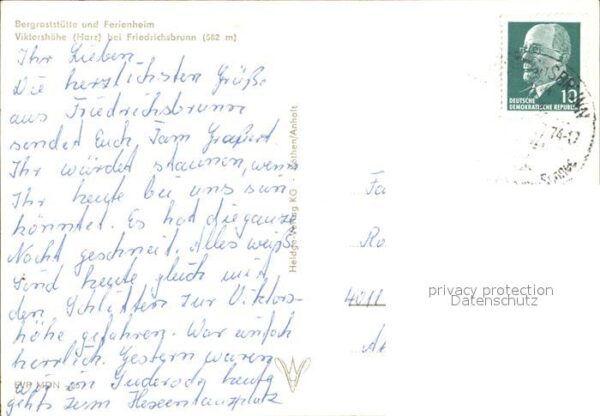 Bergraststätte und Ferienheim
Viktorshöhe (Harz) bei Friedrichsbrunn (582 m)
Ihr Lieben.
Die herzlichsten Grüße
aus Friedrichsbrunn
sendet Euch, Fam Graßert.
Ihr würdet staunen, wenn
Ihr heute bei uns sein
könntet. Es hat die ganze
Nacht geschneit. Alles weiß.
Sind heute gleich mit
den Schlitten zur Viktors-
höhe gefahren. War einfach
herrlich. Gestern waren
wir in heute
gehts zum Hexentanzplatz
EVP MDN
Heldge-Verlag KG Köthen/Anhalt
DEUTSCHE
DEMOKRATISCHE REPUBLIK
10
74-17
Fa
Ro
4011
privacy protection
Datenschutz